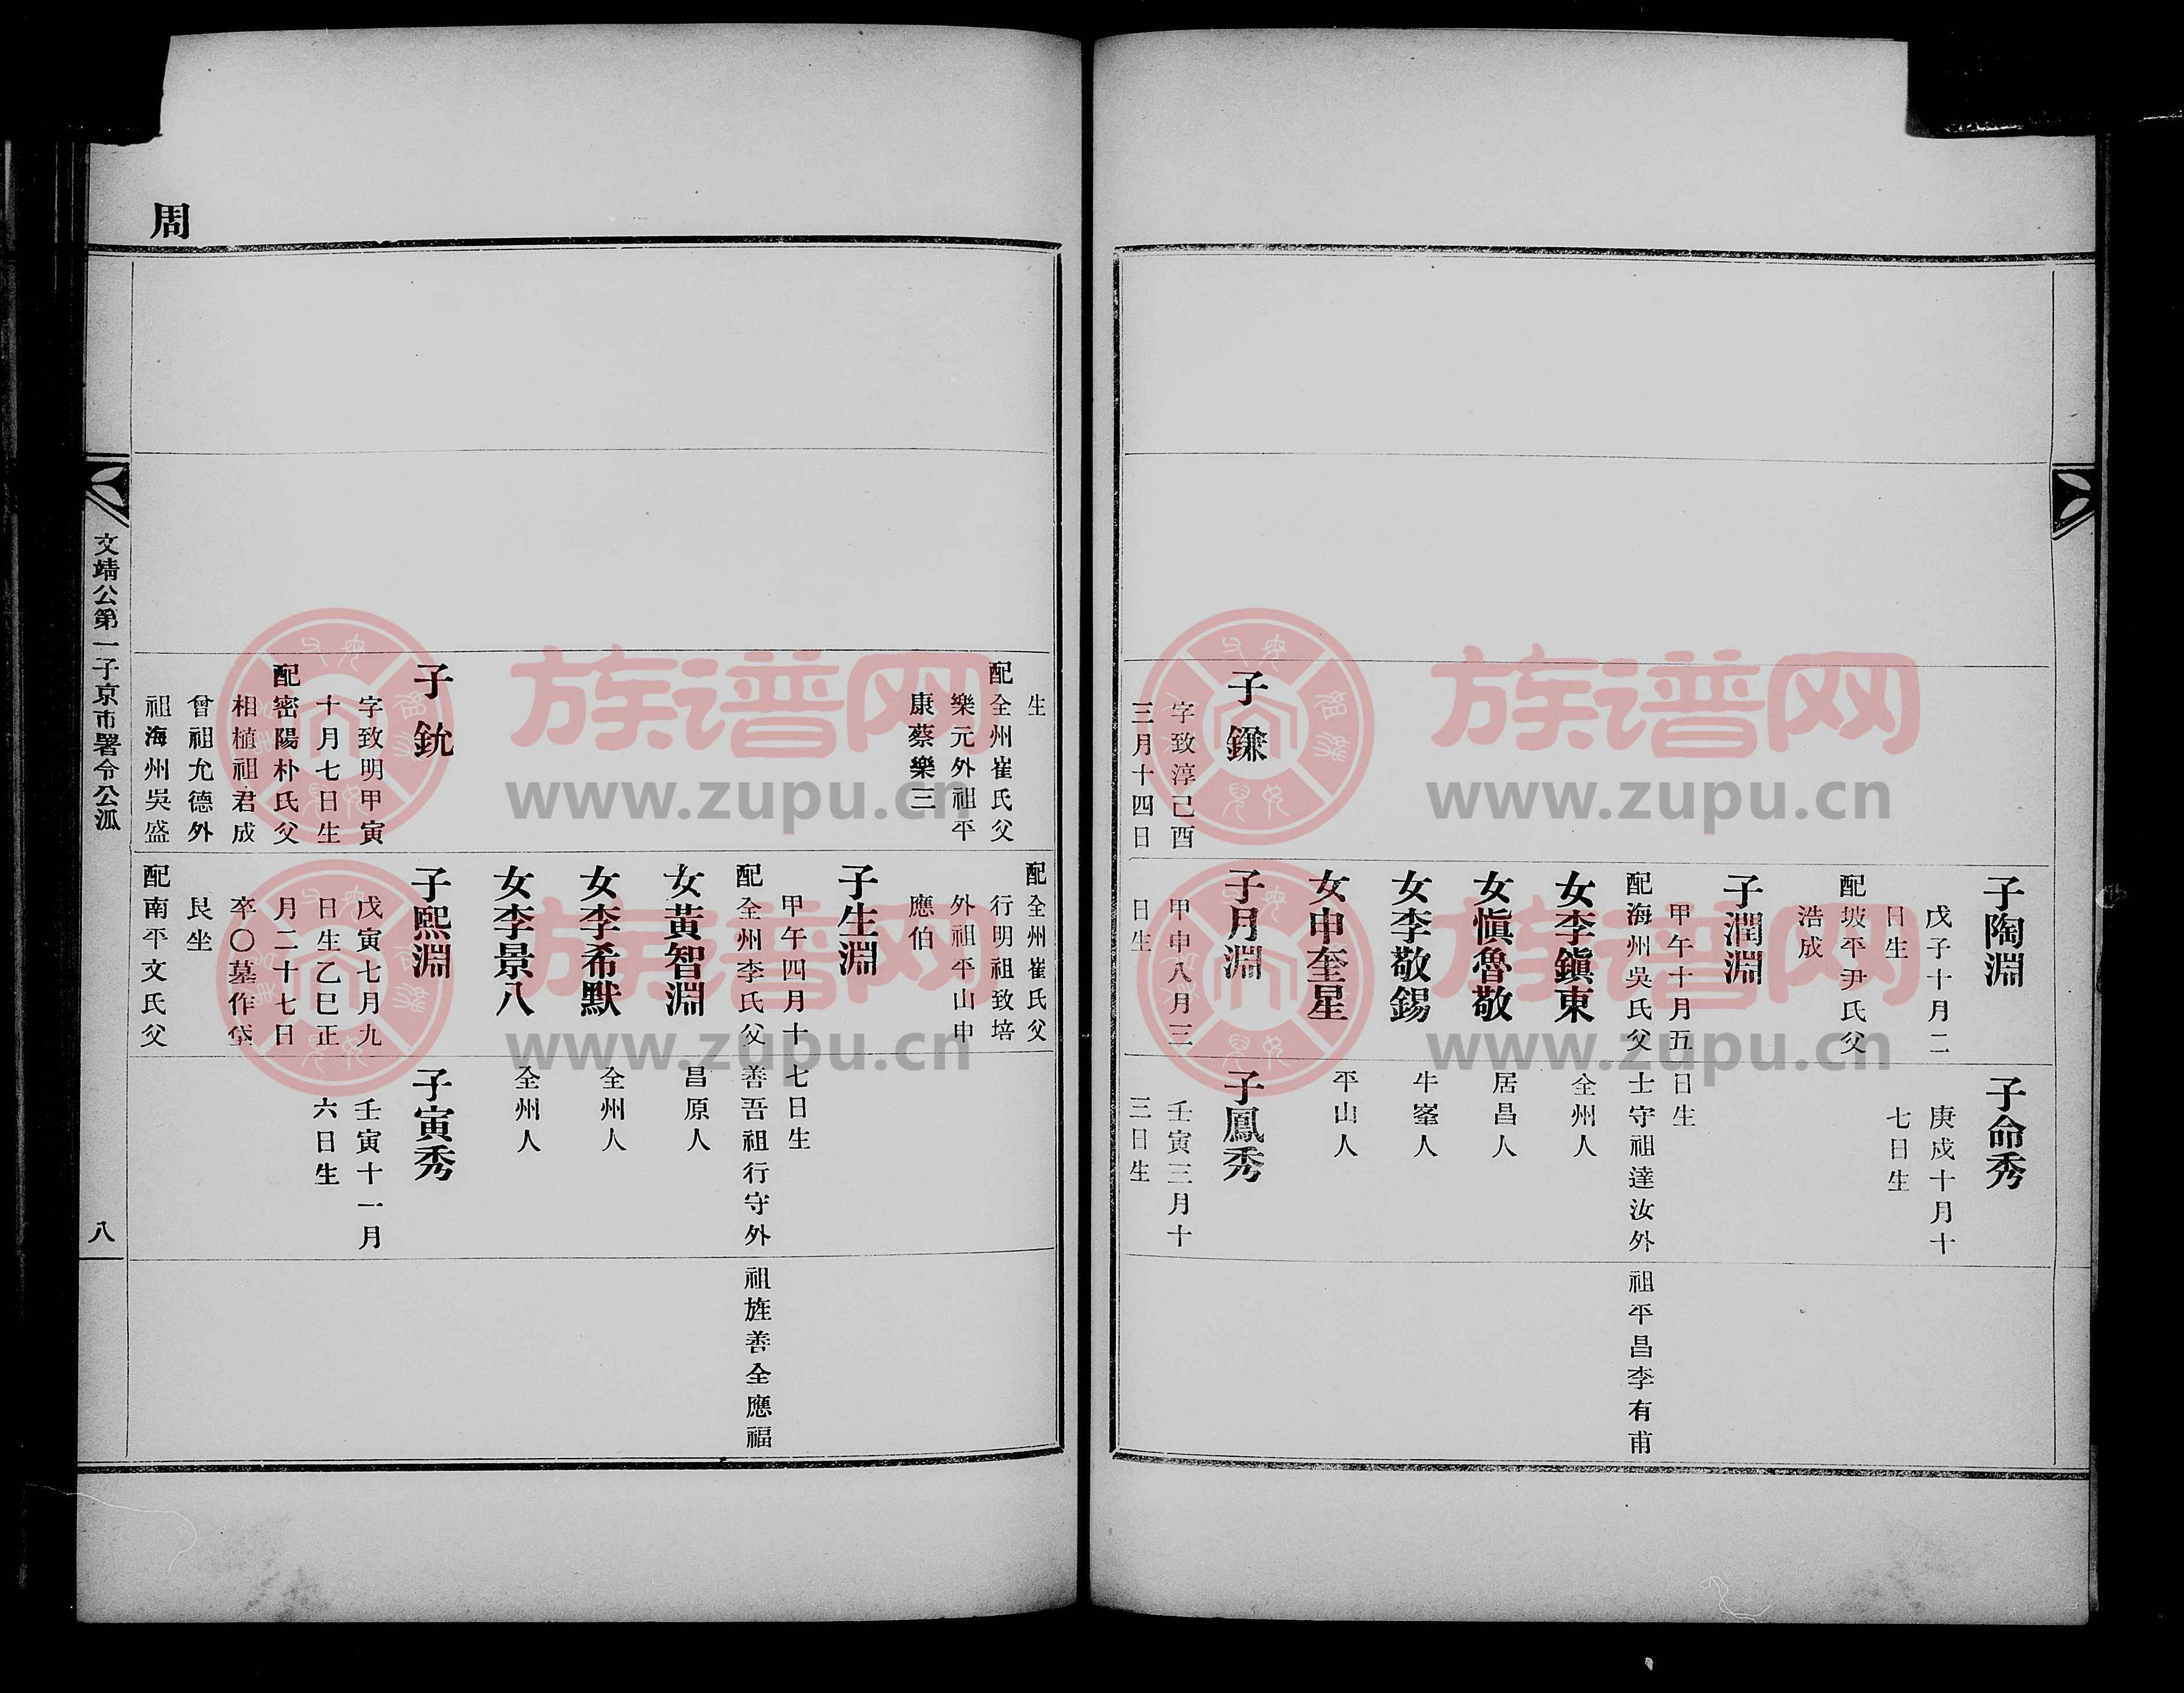 子陶淵
戊子十月二
日生
配坡平尹氏父
浩成
子潤淵
甲午十月五
日生
配海州吳氏父
士守祖達汝外
祖平昌李有甫
女李鎭東
全州人
女愼魯敬
居昌人
女李敬錫
牛峯人
女申奎星
平山人
子命秀
庚戍十月十
七日生
子鎌
字致淳己酉
三月十四日
子月淵
甲申八月三
日生
子鳳秀
壬寅三月十
三日生
周
生
配全州崔氏父
樂元外祖平
康蔡樂三
配全州崔氏父
行明祖致培
外祖平山申
應伯
子生淵
甲午四月十
七日生
配全州李氏父
善吾祖行守外
祖旌善全應福
女黃智淵
昌原人
女李希默
全州人
女李景八
全州人
子銃
字致明甲寅
十月七日生
配密陽朴氏父
相植祖君成
曾祖允德外
祖海州吳盛
子熙淵
戊寅七月九
日生乙巳正
月二十七日
卒〇墓作垈
艮坐
配南平文氏父
子寅秀
壬寅十一月
六日生
文靖公第一子京市署令公泒
八
族谱网
www.zupu.cn
族谱网
www.zupu.cn
族谱网
www.zupu.cn
族谱网
www.zupu.cn